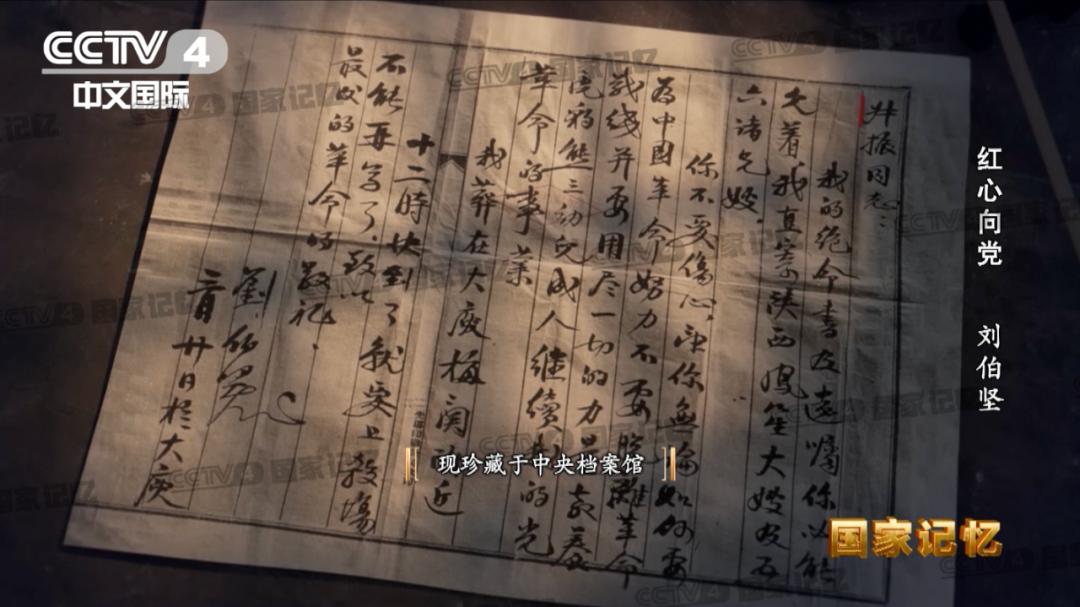 CCTV 4
中文国际
红心向党 刘伯坚
叔振同志：
我的绝命書及遗嘱你必能
见着我直寄陕西鳳笙大嫂及五
六诸兄嫂。
你不要傷心，望你無論如何要
為中國革命努力不要脱離革命
战线并要用尽一切的力量教養
虎豹熊三幼兒成人继續我的光
革命的事業
我葬在大庾梅関附近
十二時快到了就要上殺場
不能再写了，致以
最後的革命的敬礼。
劉伯堅
三月廿日於大庾
现珍藏于中央档案馆
国家记忆